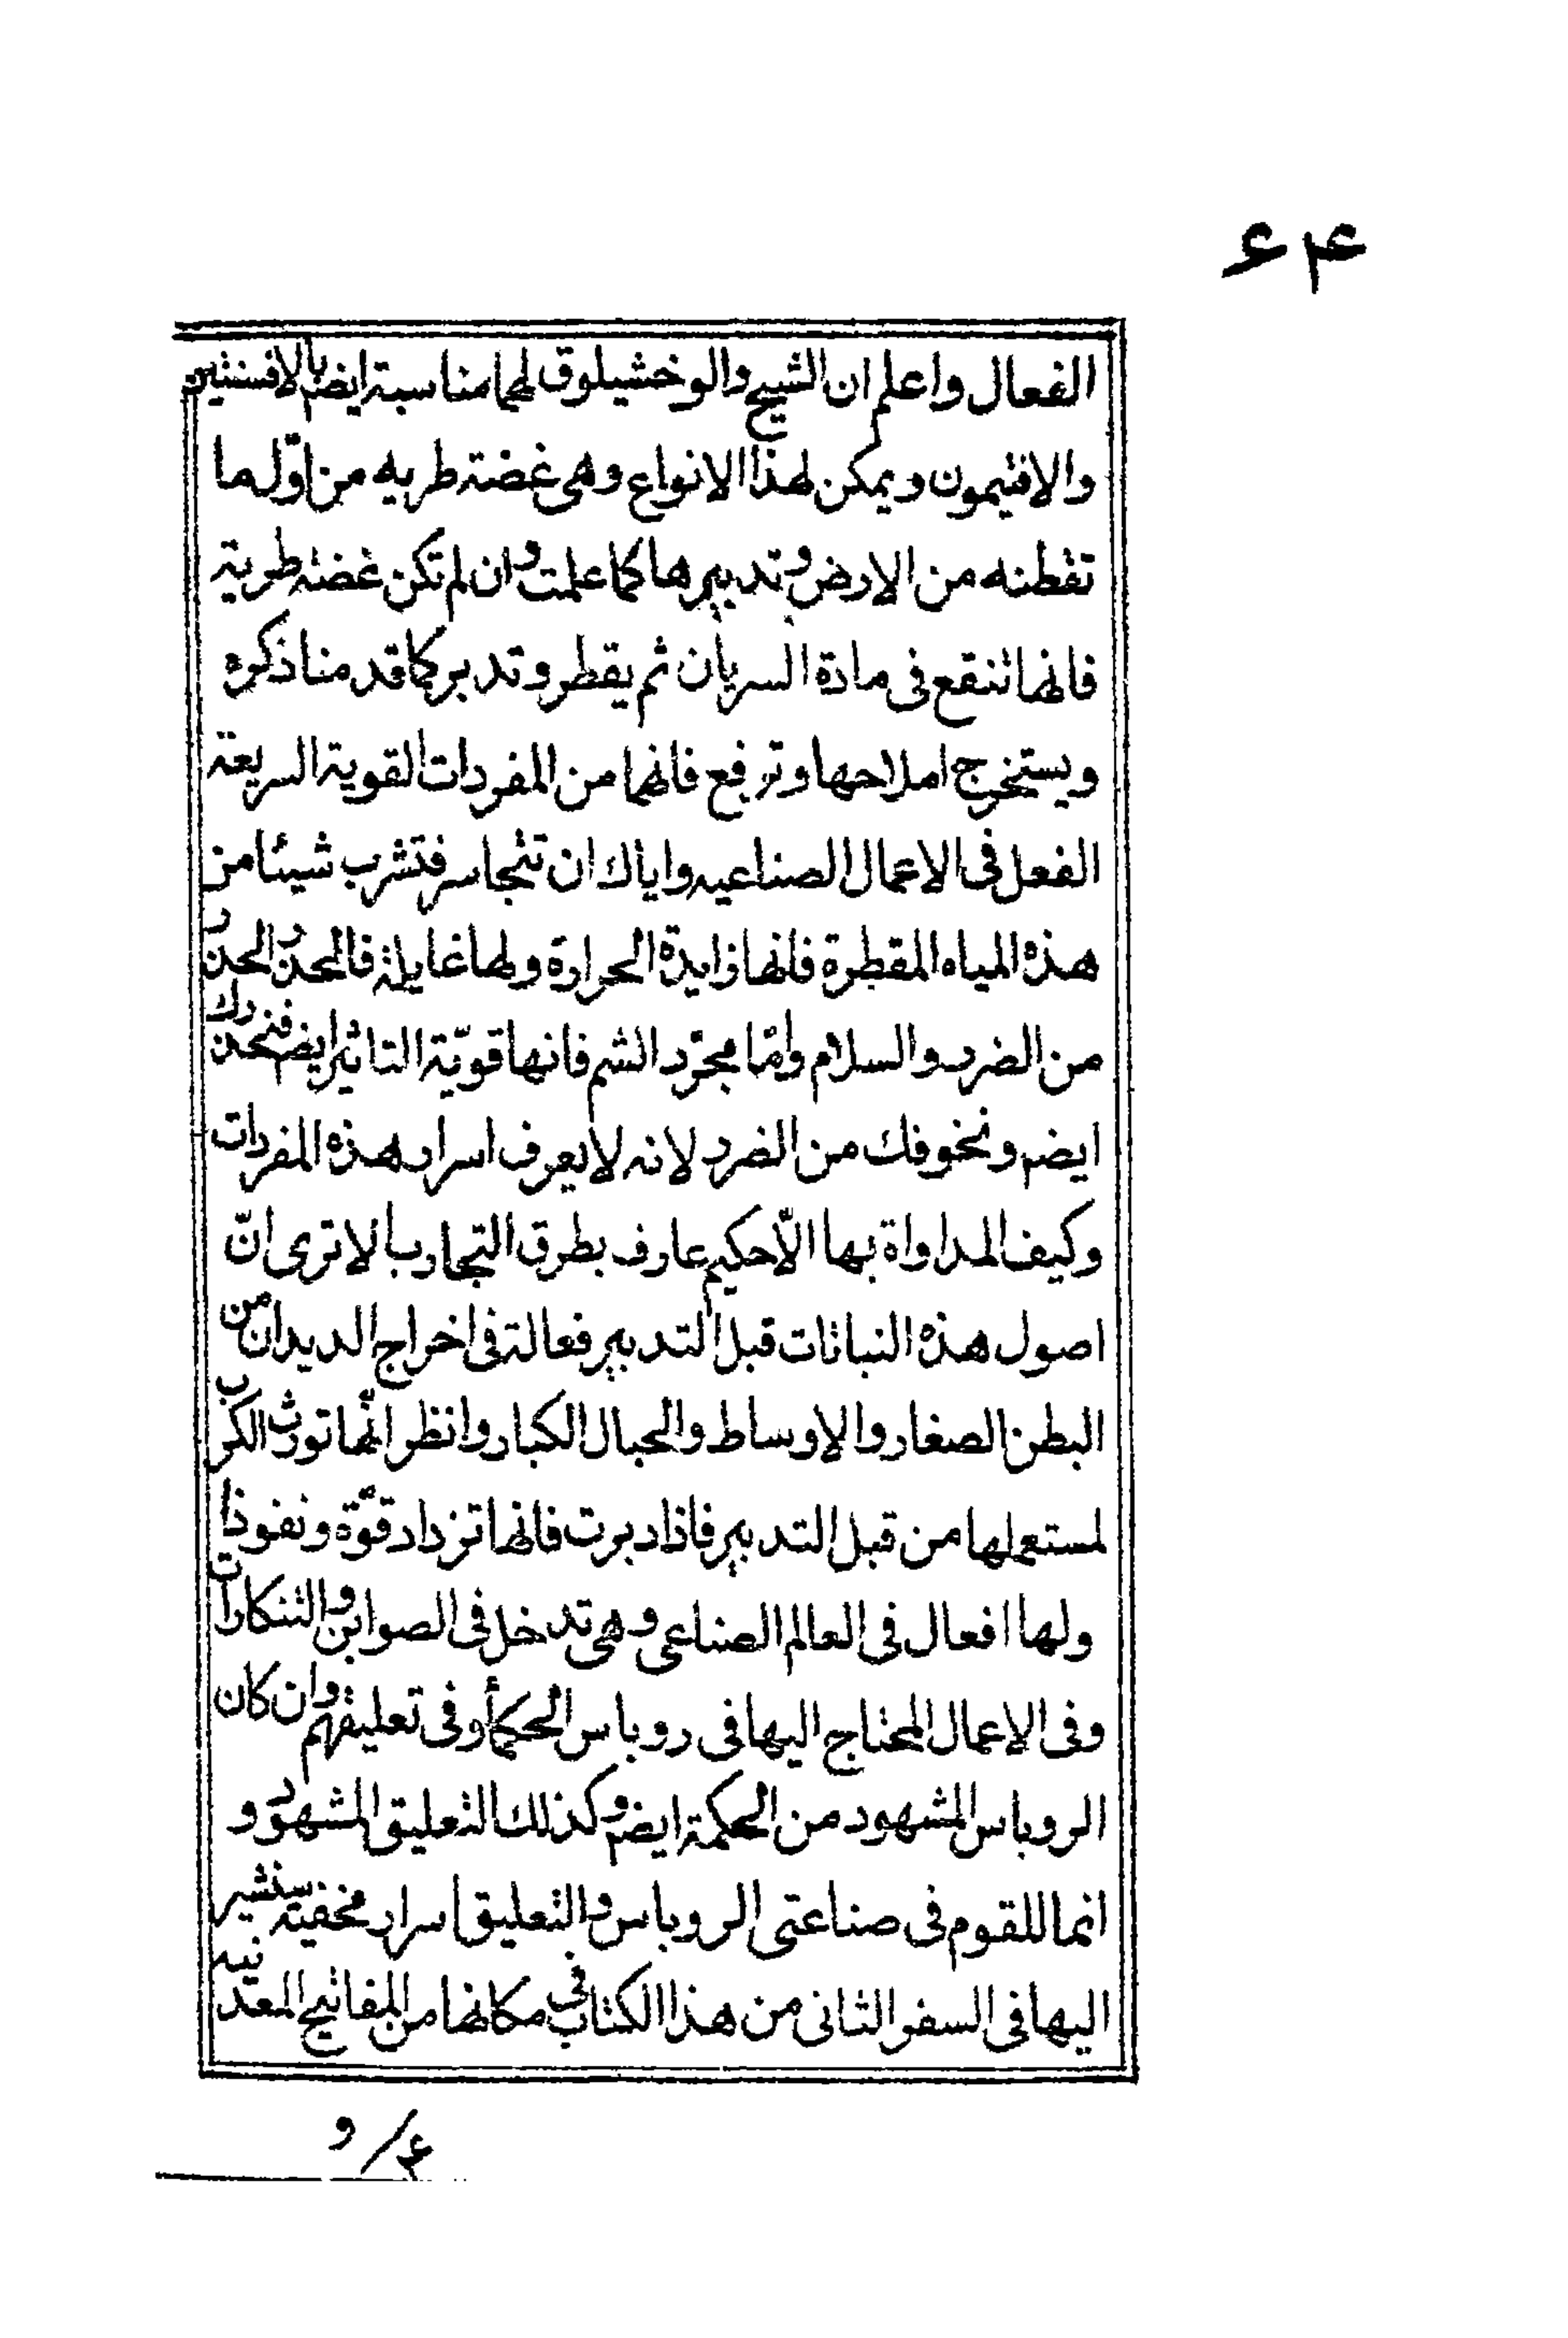 ۴۶
الفعال واعلم ان الشيح والوخشيلوق لهما مناسبة ايضا بالافسنتين
والافتيمون ويمكن لهذا الانواع وهى غضة طريه من اوّل ما
تقطنه من الارض وتدبيرها كما علمت وان لم تكن غضة طرية
فانها تنقع فى مادة السريان ثم يقطر وتدبر كما قدمنا ذكره
ويستخرج املاحها وترفع فانها من المفردات القوية السريعة
الفعل فى الاعمال الصناعيه واياك ان تتجاسر فتشرب شيئا من
هذه المياه المقطرة فانها زايدة الحرارة ولها غايلة فالحذر الحذر
من الضرر والسلام وامّا مجرّد الشم فانها قويّة التاثير ايضا فنحذرك
ايضا ونخوفك من الضرر لانه لا يعرف اسرار هذه المفردات
وكيف المداواة بها الاّ حكيم عارف بطرق التجارب الا ترى انّ
اصول هذه النباتات قبل التدبير فعالة فى اخراج الديدان من
البطن الصغار والاوساط والحبال الكبار وانظر انّها تورث الكرب
لمستعملها من قبل التدبير فاذا دبرت فانها تزداد قوّة ونفوذا
ولها افعال فى العالم الصناعى وهى تدخل فى الصوابن والتنكارات
وفى الاعمال المحتاج اليها فى روباس الحكمأ وفى تعليقهم وان كان
الروباس المشهود من الحكمة ايضا وكذلك التعليق المشهور و
انما للقوم فى صناعتى الروباس والتعليق اسرار مخفية سنشير
اليها فى السفر الثانى من هذا الكتاب فى مكانها من المفاتيح المعدنيه